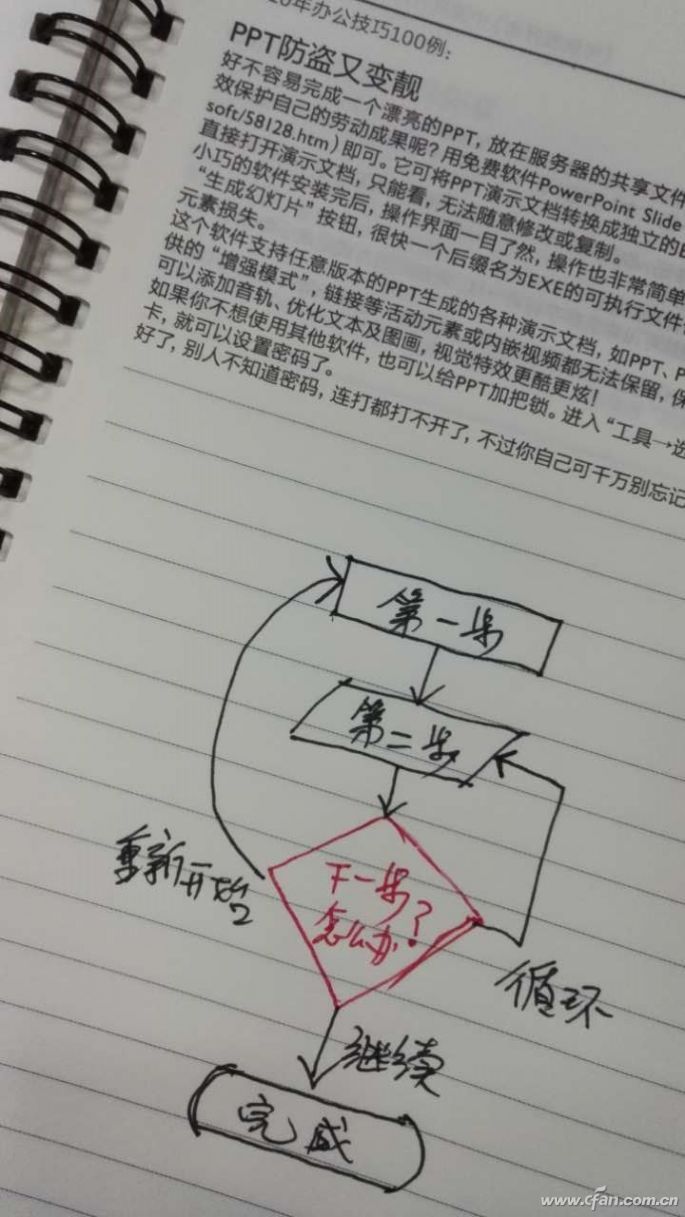 10年办公技巧100例:
PPT防盗又变靓
好不容易完成一个漂亮的PPT，放在服务器的共享文件
效保护自己的劳动成果呢？用免费软件PowerPoint Slide
soft/58128.htm）即可。它可将PPT演示文档转换成独立的
直接打开演示文档，只能看，无法随意修改或复制。
小巧的软件安装完后，操作界面一目了然，操作也非常简单
“生成幻灯片”按钮，很快一个后缀名为EXE的可执行文件
元素损失。
这个软件支持任意版本的PPT生成的各种演示文档，如PPT、P
供的“增强模式”，链接等活动元素或内嵌视频都无法保留，保
可以添加音轨、优化文本及图画，视觉特效更酷更炫！
如果你不想使用其他软件，也可以给PPT加把锁。进入“工具→选
卡，就可以设置密码了。
好了，别人不知道密码，连打都打不开了，不过你自己可千万别忘记
第一步
第二步
重新开始
下一步
怎么办？
循环
继续
完成
www.cfan.com.cn